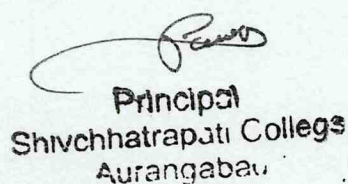 Principal
Shivchhatrapati College
Aurangabad.